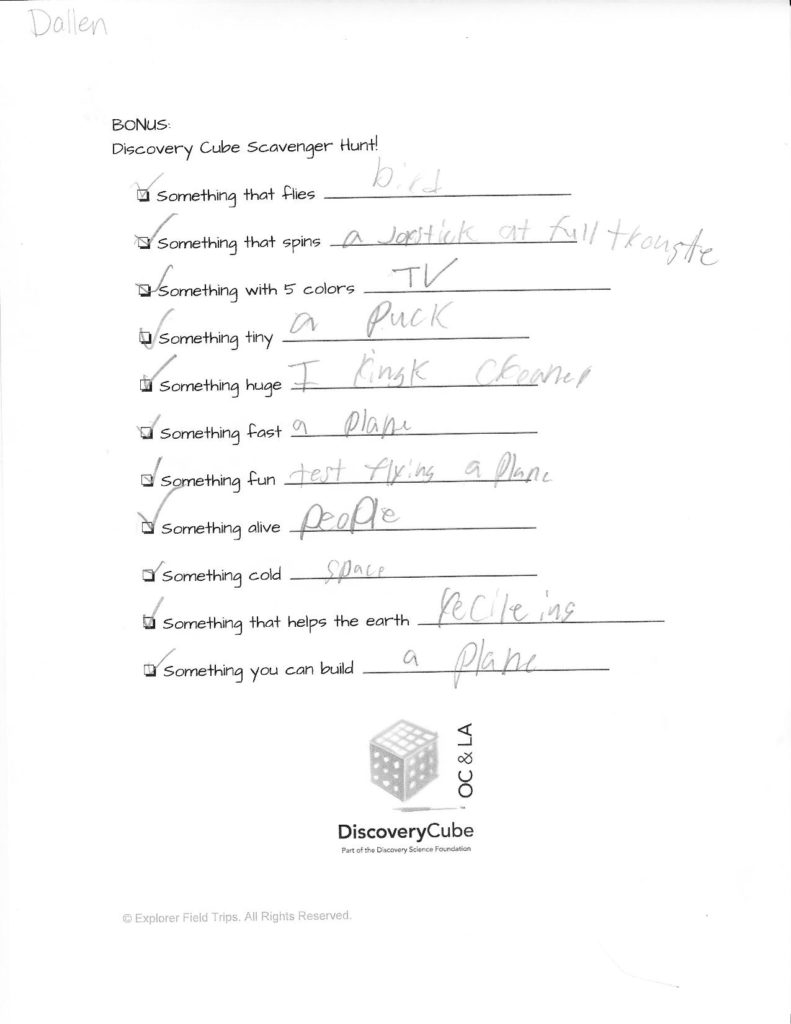 Dallen
BONUS:
Discovery Cube Scavenger Hunt!
Something that flies bird
Something that spins a Joystick at full
Something with 5 colors TV
Something tiny a Puck
Something huge I
Something fast a plane
Something fun test flying a plane
Something alive people
Something cold space
Something that helps the earth recileing
Something you can build a plane
OC & LA
DiscoveryCube
Part of the Discovery Science Foundation
© Explorer Field Trips. All Rights Reserved.